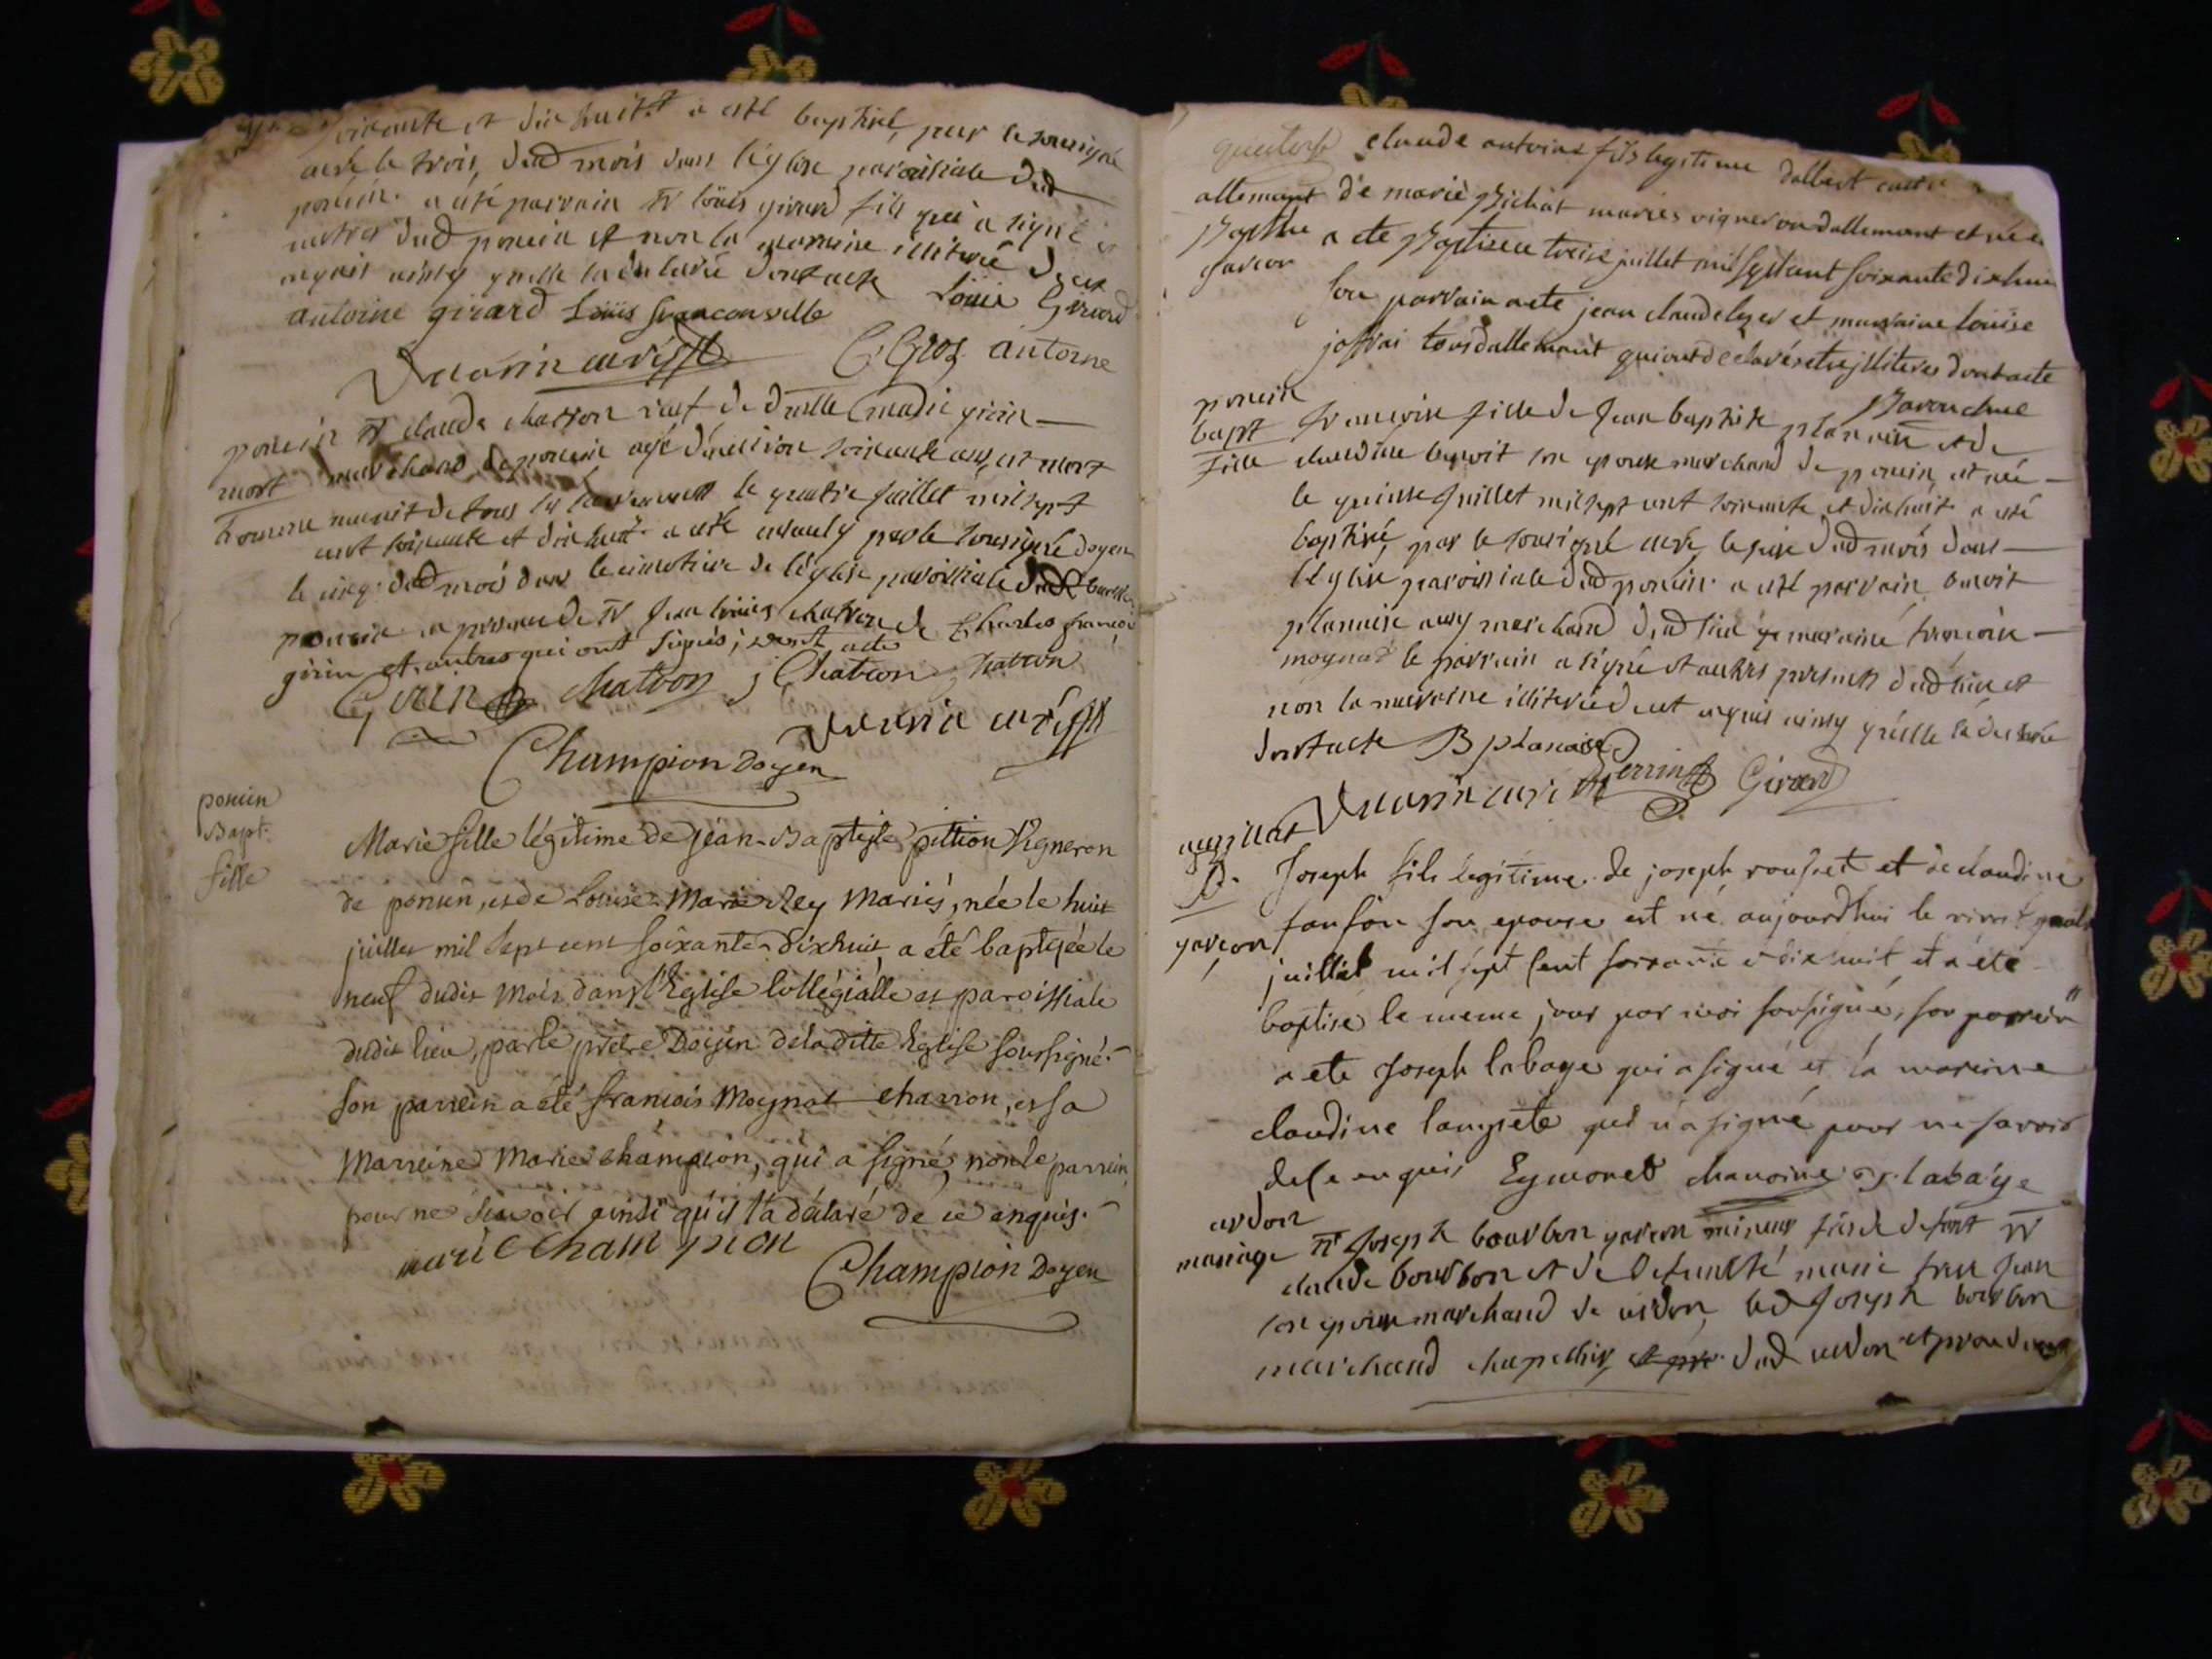 soixante et dix huit a esté baptisé, par le soussigné
curé le trois, dud mois dans l'église paroissiale dud
poncin. a été parrain sr loüis girard fils qui a signé et
autres dud poncin et non la marraine illiterée de ce
enquis ainsy qu'elle la déclaré dont acte Loüis Girard
antoine girard Loüis franconville
curé C Gros antoine
poncin sr claude chatron veuf de dlle girin
mort marchand de poncin agé d'environ soixante ans, est mort
homme munit de tous les sacrements le quatre juillet mil sept
cent soixante et dix huit a esté par le soussigné doyen
le cinq dud mois dans le cimetiere de l'église paroissiale dud
poncin en presence de sr jean loüis chatron de Charles françois
girin et autres qui ont signés; dont acte
Girin chatron j Chatron chatron
curé
Champion doyen
poncin
Bapt.
fille
Marie fille légitime de jean-Baptiste pittion Vigneron
de poncin, et de Louise-Marie Rey Mariés, née le huit
juillet mil sept cent soixante-dixhuit, a été baptisée le
neuf dudit Mois dans l'Eglise Collégialle et paroissiale
dudit lieu, par le prêtre Doyen de laditte Eglise soussigné.
Son parrein a été françois Moynat charron, et sa
Marreine Marie champion, qui a signé, non le parrein,
pour ne sçavoir ainsi qu'il l'a déclaré de ce enquis.
marie Champion
Champion Doyen
claude antoine fils legitime
allemant de marie Bichat mariés vigneron dallemant et né le
Baptthe a ete Baptisé le treise juillet mil septcent soixante dixhuit
garcon
son parrain a ete jean claude leger et marraine louise
joffrai tous dallemant qui ont déclarés etre illiteres dont acte
poncin
bapt francoise fille de jean baptiste planaise et de
fille claudine benoit son epouse marchand de poncin, est née
le quinse juillet mil sept cent soixante et dix huit a esté
baptisé, par le soussigné curé, le seise dud mois dans
l'église paroissiale dud poncin. a esté parrain benoit
planaise aussy marchand dud lieu et maraine francoise
moynat le parrain a signé et autres presents dud lieu et
non la marraine illiterée de ce enquis ainsy qu'elle la declaré
dont acte B planaise
curé Perrin Girard
B. Joseph fils legitime de joseph rousset et de claudine
tonson son epouse est né aujourdhui le vint quatre
garcon
juillet mil sept cent soixante et dix huit et a été
baptisé le meme jour par moi soussigné, son parrein
a ete joseph labaye qui a signé et la mareine
claudine longuete qui n'a signé pour ne savoir
de ce enquis Eymonet chanoine j. labaÿe
cerdon
mariage sr joseph bourbon garcon mineur fils de defunt sr
claude bourbon et de defuncte marie
son epouse marchand de cerdon led joseph bourbon
marchand chapellier dud cerdon